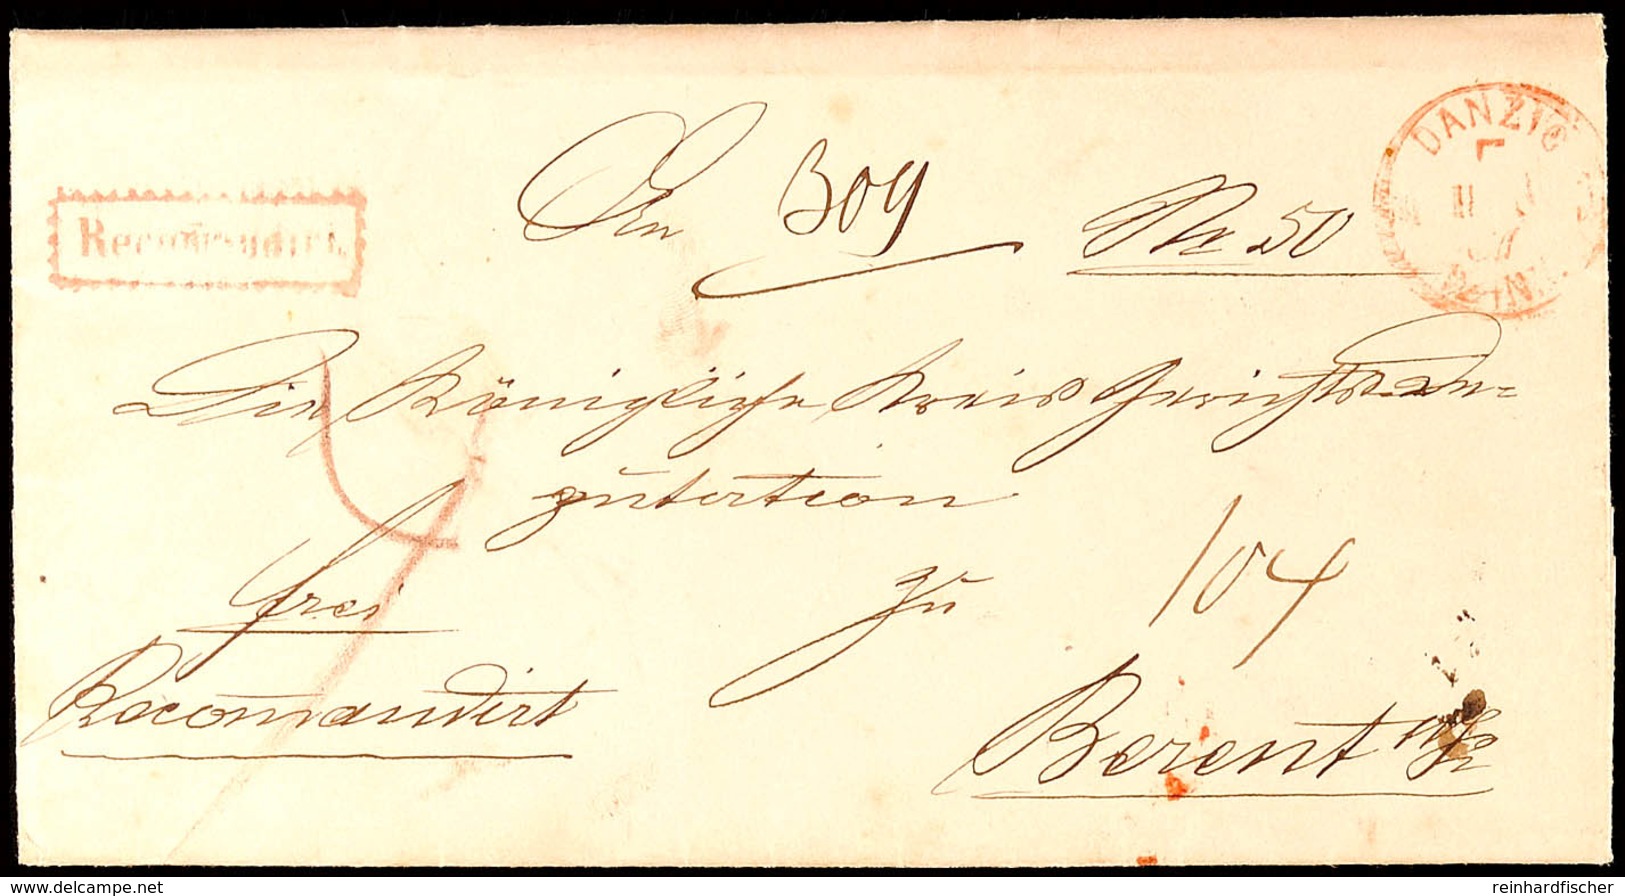 Recommandirt.
DANZIG
7
II
An 309 Nr 50
Die Königliche Kreis Gerichts
zu 104
frei
Recomandirt
Berent
delcampe.net
reinhardfischer